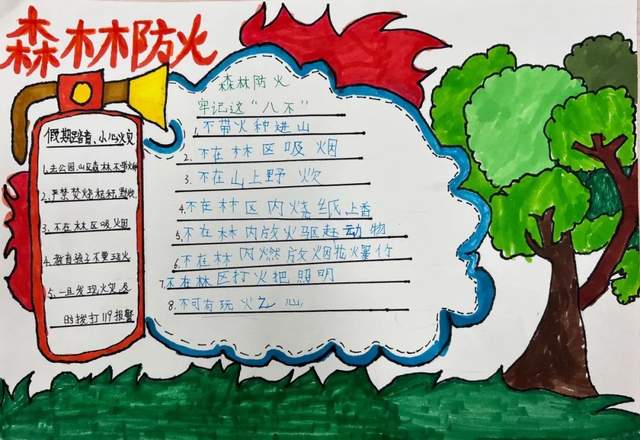 森林防火
假期踏青、小心火灾
1.去公园、山区森林不带火种
2.严禁焚烧秸秆、垃圾
3.不在林区吸烟
4.教育孩子不要玩火
5.一旦发现火灾及
时拨打119报警
森林防火
牢记这“八不”
1.不带火种进山
2.不在林区吸烟
3.不在山上野炊
4.不在林区内烧纸上香
5.不在林内放火驱赶动物
6.不在林内燃放烟花爆竹
7.不在林区打火把照明
8.不可有玩火之心